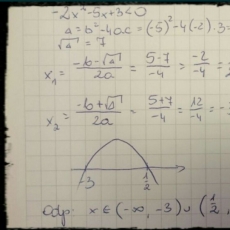 -2x²-5x+3<0
Δ=b²-4ac=(-5)²-4(-2)·3=
√Δ = 7
x₁= (-b-√Δ)/2a = (5-7)/-4 = -2/-4 =
x₂= (-b+√Δ)/2a = (5+7)/-4 = 12/-4 = -
-3 1/2
Odp: x∈(-∞, -3)∪(1/2,